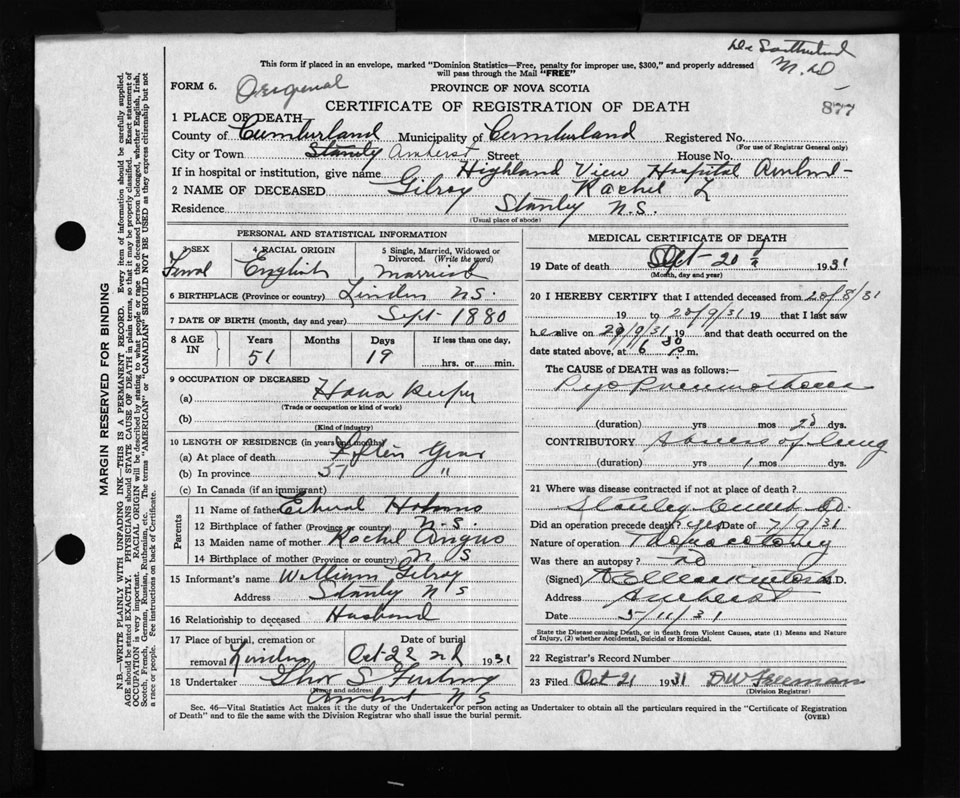 M.D
This form if placed in an envelope, marked "Dominion Statistics—Free, penalty for improper use, $300," and properly addressed
will pass through the Mail "FREE"
FORM 6. Original PROVINCE OF NOVA SCOTIA
877
CERTIFICATE OF REGISTRATION OF DEATH
1 PLACE OF DEATH—
County of Cumberland Municipality of Cumberland Registered No.
(For use of Registrar General only)
City or Town Stanley Amherst Street House No.
If in hospital or institution, give name Highland View Hospital Amherst
2 NAME OF DECEASED Gilroy Rachel L
Residence Stanley N.S.
(Usual place of abode)
PERSONAL AND STATISTICAL INFORMATION
3 SEX 4 RACIAL ORIGIN 5 Single, Married, Widowed or
Divorced. (Write the word)
English married
6 BIRTHPLACE (Province or country) Linden N.S.
7 DATE OF BIRTH (month, day and year) Sept 1880
8 AGE IN Years Months Days If less than one day,
51 19 hrs. or min.
9 OCCUPATION OF DECEASED
(a) House keeper
(Trade or occupation or kind of work)
(b)
(Kind of industry)
10 LENGTH OF RESIDENCE (in years and months)
(a) At place of death Fifteen Years
(b) In province 51 "
(c) In Canada (if an immigrant)
Parents
11 Name of father
12 Birthplace of father (Province or country) N.S.
13 Maiden name of mother Rachel Angus
14 Birthplace of mother (Province or country) N S
15 Informant's name William Gilroy
Address Stanly N S
16 Relationship to deceased Husband
17 Place of burial, cremation or Date of burial
removal Linden Oct 22nd 1931
18 Undertaker
(Name and address)
Amherst N S
MEDICAL CERTIFICATE OF DEATH
19 Date of death 20 1931
(Month, day and year)
20 I HEREBY CERTIFY that I attended deceased from 20/8/31
19 to 20/9/31 19 that I last saw
h er alive on 20/9/31 19 and that death occurred on the
date stated above, at 6 30 P.m.
The CAUSE of DEATH was as follows:—
Pyo Pneumothorax
(duration) yrs mos dys.
CONTRIBUTORY Abscess of lung
(duration) yrs 1 mos dys.
21 Where was disease contracted if not at place of death?
Stanley Cumb Co.
Did an operation precede death? yes Date of 7/9/31
Nature of operation Thoracotomy
Was there an autopsy? no
(Signed) M.D.
Address Amherst
Date 5/11/31
State the Disease causing Death, or in death from Violent Causes, state (1) Means and Nature
of Injury, (2) whether Accidental, Suicidal or Homicidal.
22 Registrar's Record Number
23 Filed Oct 21 1931 DW Freeman
(Division Registrar)
Sec. 46—Vital Statistics Act makes it the duty of the Undertaker or person acting as Undertaker to obtain all the particulars required in the "Certificate of Registration
of Death" and to file the same with the Division Registrar who shall issue the burial permit. (OVER)
MARGIN RESERVED FOR BINDING
N.B.—WRITE PLAINLY WITH UNFADING INK—THIS IS A PERMANENT RECORD. Every item of information should be carefully supplied.
AGE should be stated EXACTLY. PHYSICIANS should STATE CAUSE OF DEATH in plain terms, so that it may be properly classified. Exact statement of
OCCUPATION is very important. RACIAL ORIGIN will be described by stating to what people or race the deceased person belonged, whether English, Irish,
Scotch, French, German, Russian, Ruthenian, etc. The terms "AMERICAN" or "CANADIAN" SHOULD NOT BE USED as they express citizenship but not
a race or people. See instructions on back of Certificate.